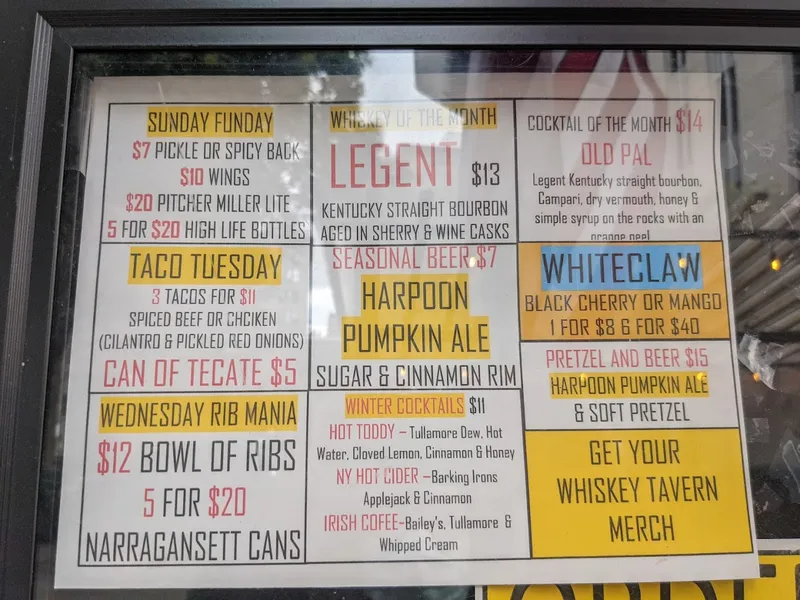 SUNDAY FUNDAY
$7 PICKLE OR SPICY BACK
$10 WINGS
$20 PITCHER MILLER LITE
5 FOR $20 HIGH LIFE BOTTLES
TACO TUESDAY
3 TACOS FOR $11
SPICED BEEF OR CHCIKEN
(CILANTRO & PICKLED RED ONIONS)
CAN OF TECATE $5
WEDNESDAY RIB MANIA
$12 BOWL OF RIBS
5 FOR $20
NARRAGANSETT CANS
WHISKEY OF THE MONTH
LEGENT $13
KENTUCKY STRAIGHT BOURBON
AGED IN SHERRY & WINE CASKS
SEASONAL BEER $7
HARPOON
PUMPKIN ALE
SUGAR & CINNAMON RIM
WINTER COCKTAILS $11
HOT TODDY – Tullamore Dew, Hot
Water, Cloved Lemon, Cinnamon & Honey
NY HOT CIDER –Barking Irons
Applejack & Cinnamon
IRISH COFEE-Bailey's, Tullamore &
Whipped Cream
COCKTAIL OF THE MONTH $14
OLD PAL
Legent Kentucky straight bourbon,
Campari, dry vermouth, honey &
simple syrup on the rocks with an
orange peel
WHITECLAW
BLACK CHERRY OR MANGO
1 FOR $8 6 FOR $40
PRETZEL AND BEER $15
HARPOON PUMPKIN ALE
& SOFT PRETZEL
GET YOUR
WHISKEY TAVERN
MERCH